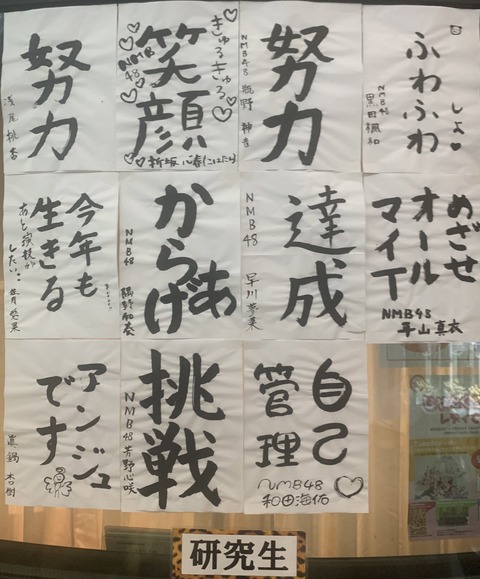 努力
浅尾桃香
きゅるきゅる
笑顔
NMB48
折坂心春(こはたん)
努力
NMB48 瓶野神音
ふわふわ
しよ♥
NMB48
黒田楓和
今年も
生きる
あと演技が
したい。
からあげ
NMB48
隅野和奏
達成
NMB48 早川夢菜
めざせ
オール
マイT
NMB48
平山真衣
アンジュ
です
眞鍋杏樹
挑戦
NMB48 芳野心咲
自己
管理
NMB48
和田海佑
研究生